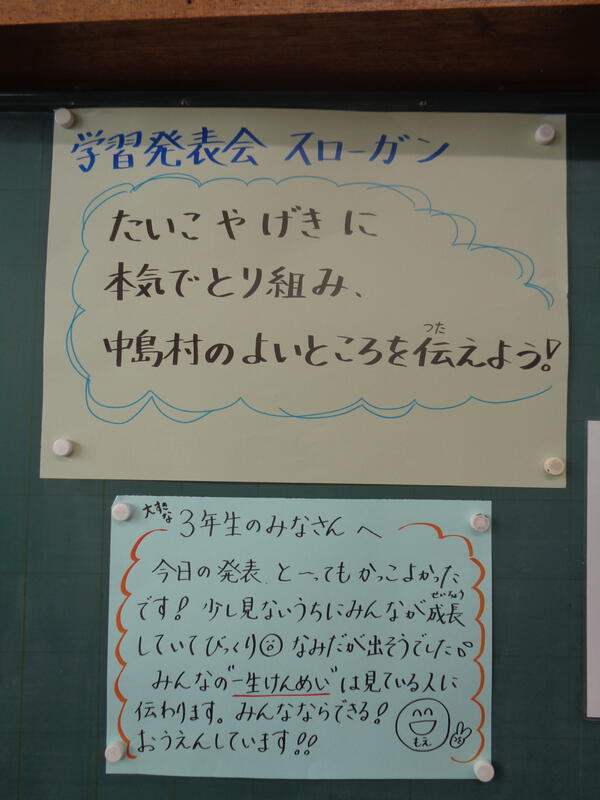 学習発表会 スローガン
たいこやげきに
本気でとり組み、
中島村のよいところを伝えよう!
つた
大すきな
3年生のみなさんへ
今日の発表、と一ってもかっこよかった
です! 少し見ないうちにみんなが成長
せいちょう
していてびっくり なみだが出そうでした。
みんなの"一生けんめい"は見ている人に
伝わります。みんなならできる!
おうえんしています!!
もえ